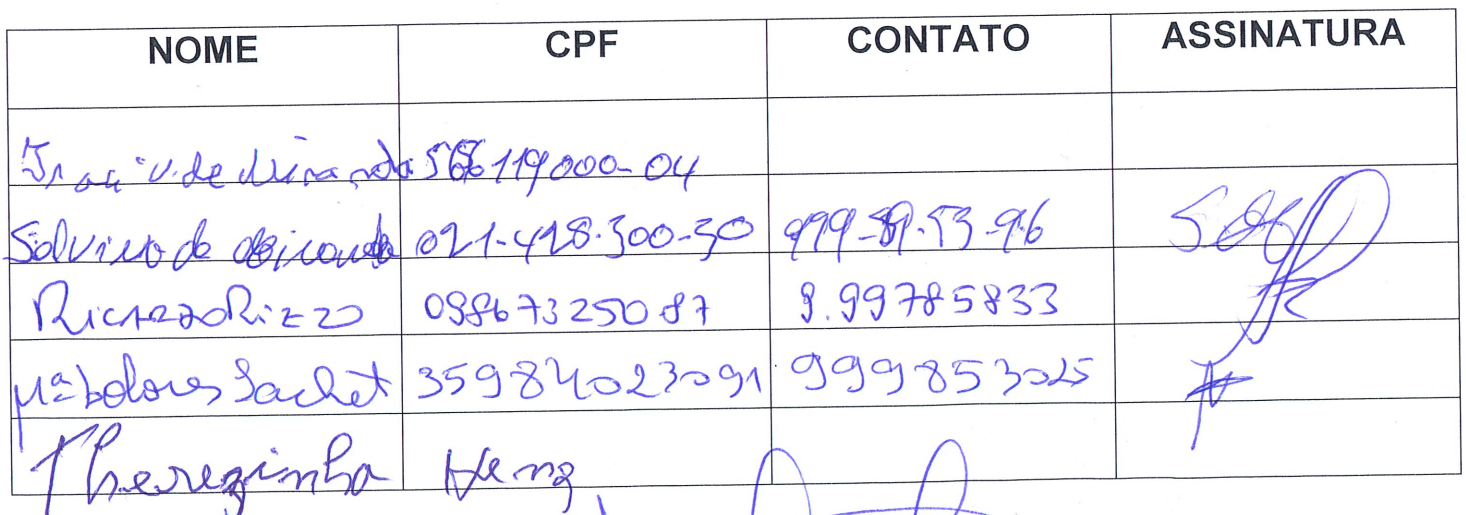 NOME CPF CONTATO ASSINATURA
V. de Miranda 566119000-04
Salvino de 021-428.300-30 999-89.53-96
Ricardo Rizzo 09867325087 9.99785833
Mª Dolores Sachet 35984023091 999853025
Therezinha Henz